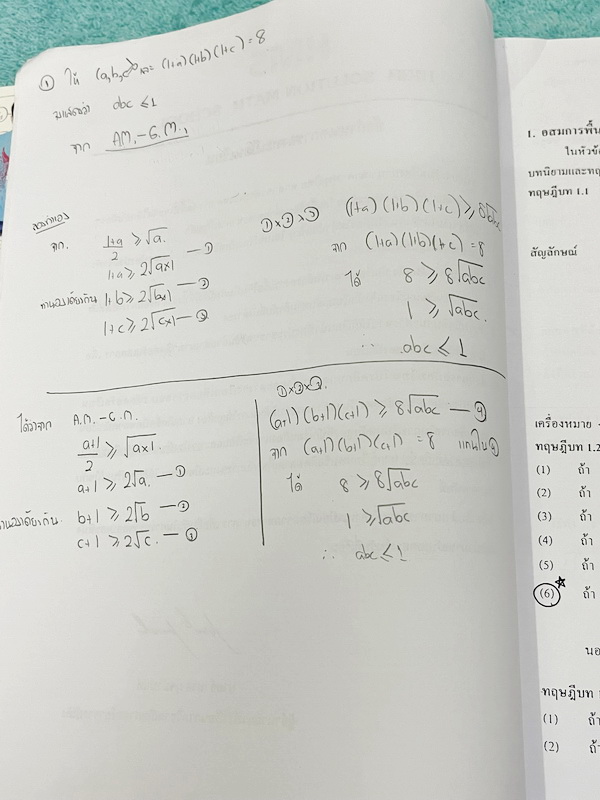 ① ให้ (a,b,c)>0 และ (1+a)(1+b)(1+c) = 8
จงแสดงว่า abc ≤ 1
จาก A.M.-G.M.
จาก. (1+a)/2 ≥ √a.
1+a ≥ 2√(a×1) — ①
ทำนองเดียวกัน 1+b ≥ 2√(b×1) — ②
1+c ≥ 2√(c×1) — ③
①×②×③ (1+a)(1+b)(1+c) ≥ 8√abc
จาก (1+a)(1+b)(1+c) = 8
ได้ 8 ≥ 8√abc
1 ≥ √abc.
∴ abc ≤ 1
ได้ว่าจาก A.M.-G.M.
(a+1)/2 ≥ √(a×1).
a+1 ≥ 2√a. — ①
ทำนองเดียวกัน. b+1 ≥ 2√b — ②
c+1 ≥ 2√c. — ③
①×②×③.
(a+1)(b+1)(c+1) ≥ 8√abc — ④
จาก (a+1)(b+1)(c+1) = 8 แทนใน ④
ได้ 8 ≥ 8√abc
1 ≥ √abc
∴ abc ≤ 1
1. อสมการพื้น
ในหัวข้
บทนิยามและทฤ
ทฤษฎีบท 1.1
สัญลักษณ์
เครื่องหมาย
ทฤษฎีบท 1.2
(1) ถ้า
(2) ถ้า
(3) ถ้า
(4) ถ้า
(5) ถ้า
(6) ถ้า
นอ
ทฤษฎีบท
(1) ถ้า
(2) ถ้า